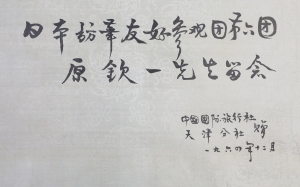 日本访华友好参观团第六团
原钦一先生留念
中国国际旅行社
天津分社 赠
一九六四年十二月